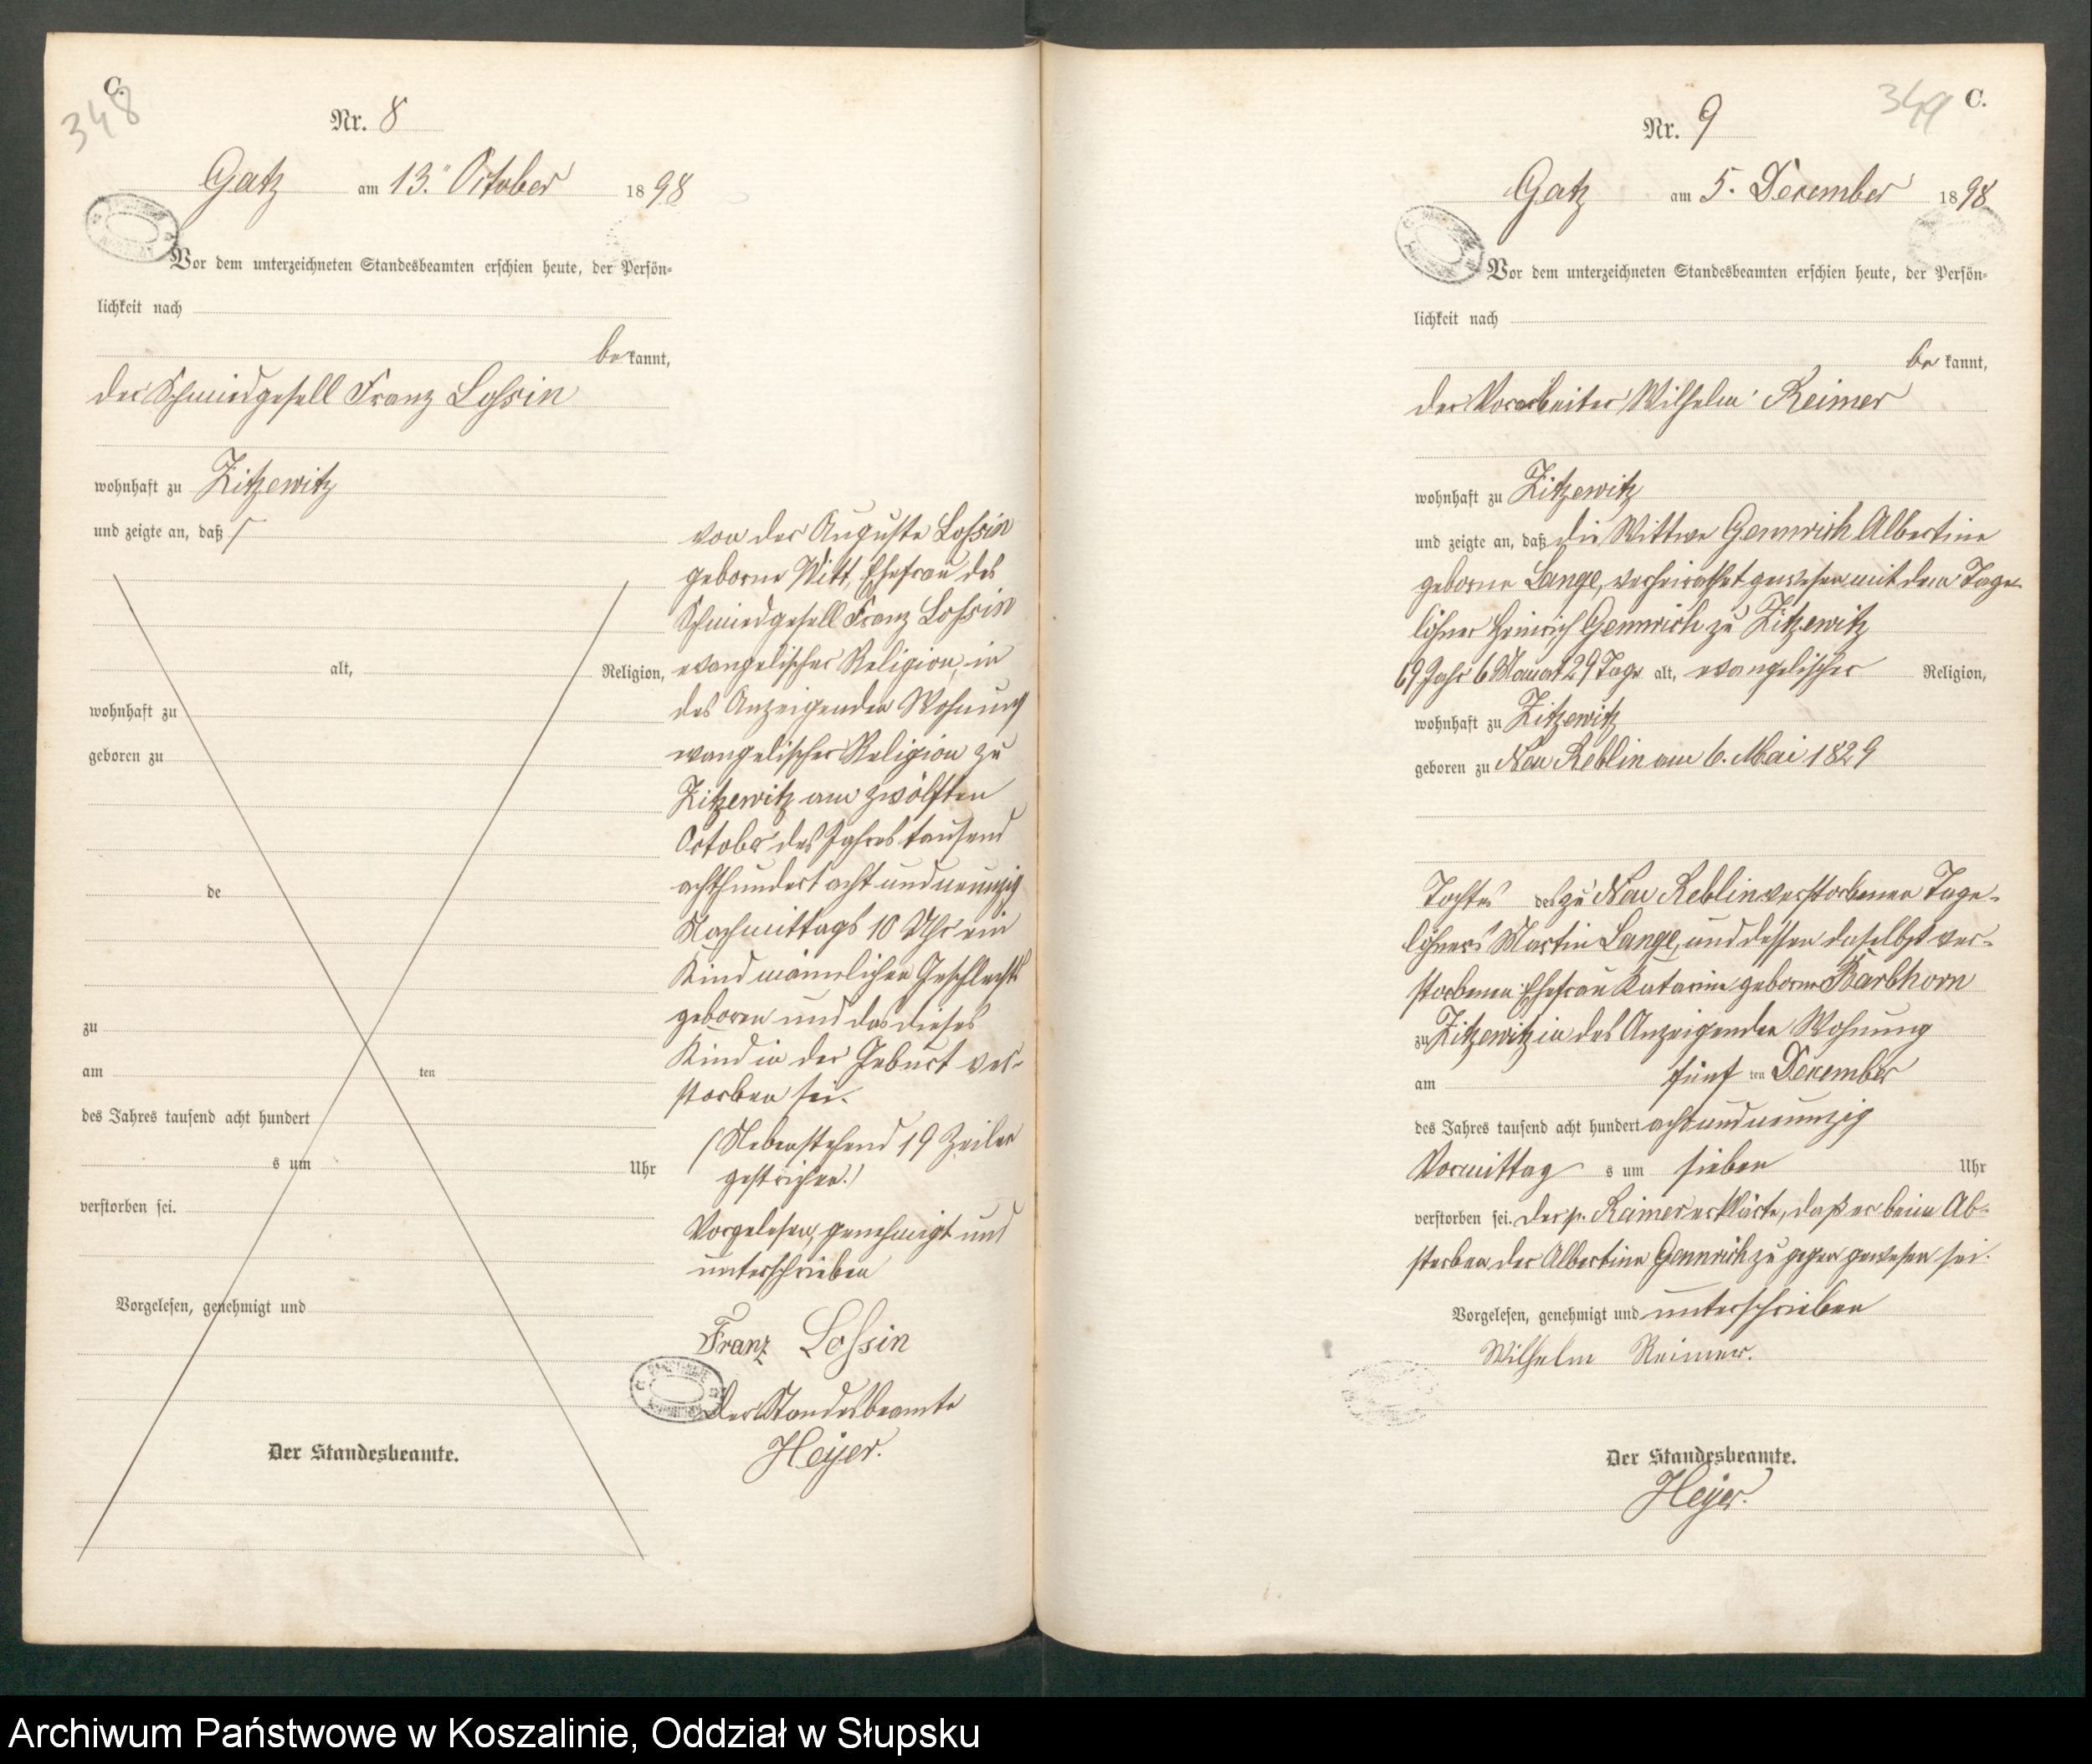 C.
348
Nr. 8
Gatz am 13. October 1898
Vor dem unterzeichneten Standesbeamten erschien heute, der Persön-
lichkeit nach
bekannt,
der Schmiedgesell Franz Lossin
wohnhaft zu Zitzewitz
und zeigte an, daß
alt, Religion,
wohnhaft zu
geboren zu
de
zu
am ten
des Jahres tausend acht hundert
s um Uhr
verstorben sei.
Vorgelesen, genehmigt und
Der Standesbeamte.
von der Auguste Lossin
geborne Witt, Ehefrau des
Schmiedgesell Franz Lossin
evangelischer Religion, in
des Anzeigenden Wohnung
evangelischer Religion zu
Zitzewitz am zwölften
October des Jahres tausend
achthundert acht und neunzig
Nachmittags 10 Uhr ein
Kind männlichen Geschlechts
geboren und das dieses
Kind in der Geburt ver-
storben sei.
(Nebenstehend 19 Zeilen
gestrichen.)
Vorgelesen, genehmigt und
unterschrieben
Franz Lossin
Der Standesbeamte
Heyer.
349 C.
Nr. 9
Gatz am 5. December 1898
Vor dem unterzeichneten Standesbeamten erschien heute, der Persön-
lichkeit nach
bekannt,
der Vorarbeiter Wilhelm Reimer
wohnhaft zu Zitzewitz
und zeigte an, daß die Wittwe Gennrich Albertine
geborne Lange, verheirathet gewesen mit dem Tage-
löhner Heinrich Gennrich zu Zitzewitz
69 Jahr 6 Monat 29 Tage alt, evangelischer Religion,
wohnhaft zu Zitzewitz
geboren zu Neu Reblin am 6. Mai 1829
Tochter des zu Neu Reblin verstorbenen Tage-
löhners Martin Lange, und dessen daselbst ver-
storbenen Ehefrau Katarine geborne Barbknorn
zu Zitzewitz in des Anzeigenden Wohnung
am fünf ten December
des Jahres tausend acht hundert acht und neunzig
Vormittag s um sieben Uhr
verstorben sei. Der p. Reimer erklärte, daß er beim Ab-
sterben der Albertine Gennrich zu gegen gewesen sei.
Vorgelesen, genehmigt und unterschrieben
Wilhelm Reimer.
Der Standesbeamte.
Heyer.
Archiwum Państwowe w Koszalinie, Oddział w Słupsku